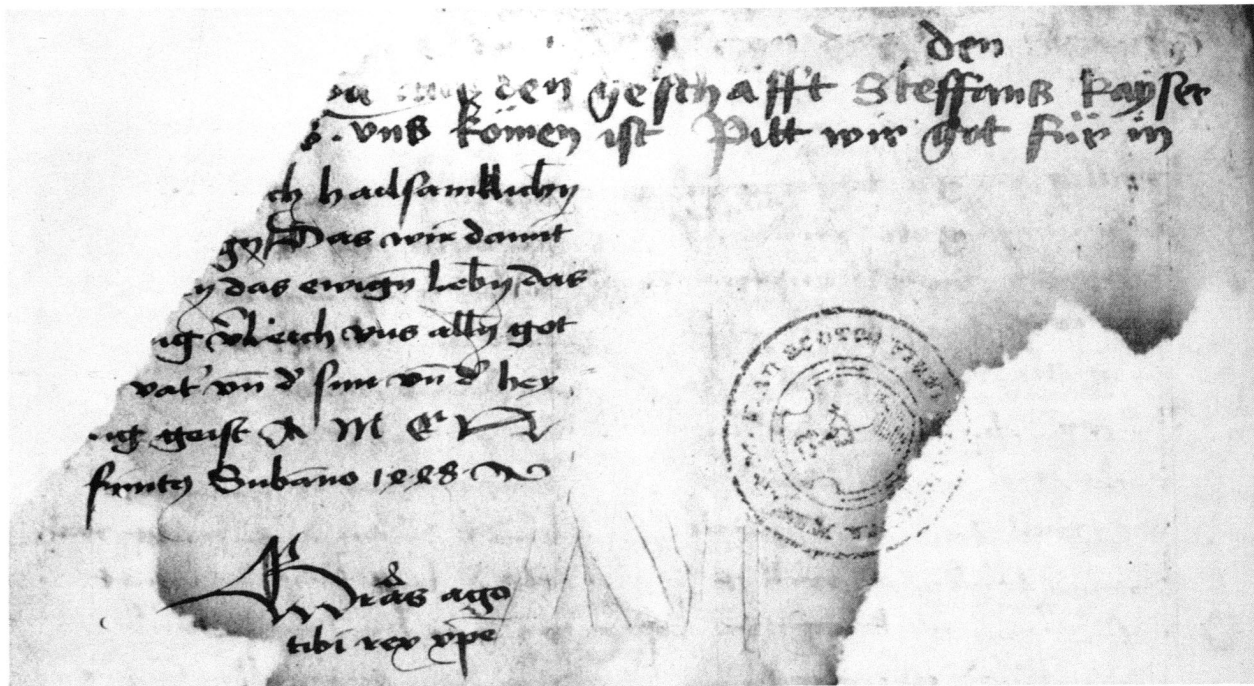 den
den geschafft Steffans kayser
vns kömen ist Pitt wir got für in
ch hailsamklichn
gn Das wir damit
n das ewign lebn das
ig v̄leich vns alln got
vat' vn̄ d' sun vn̄ d' hey
ig geist A M E N
finitꝫ Sub an̄o 1448
Grās ago
tibi rex xp̄e